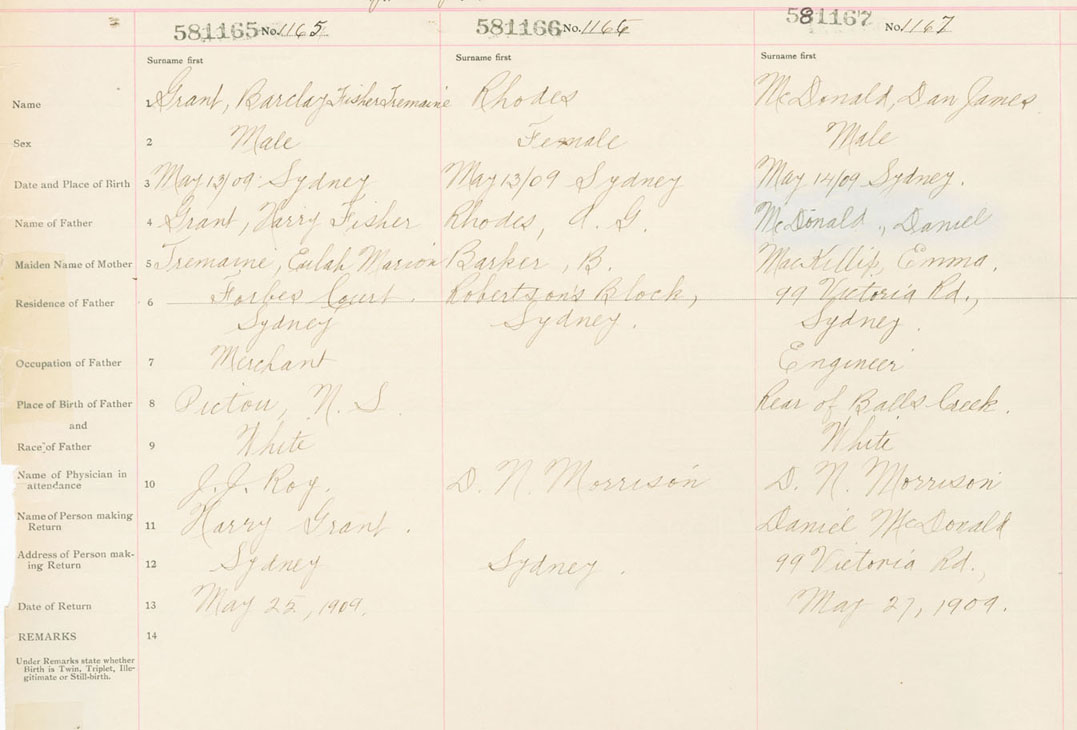 581165 No. 1165 581166 No. 1166 581167 No. 1167
Surname first Surname first Surname first
Name 1 Grant, Barclay Fisher Tremaine Rhodes McDonald, Dan James
Sex 2 Male Female Male
Date and Place of Birth 3 May 13/09 Sydney May 13/09 Sydney May 14/09 Sydney.
Name of Father 4 Grant, Harry Fisher Rhodes, A. G. McDonald, Daniel
Maiden Name of Mother 5 Tremaine, Eulah Marion Barker, B. MacKillip, Emma.
Residence of Father 6 Forbes Court. Robertson's Block, 99 Victoria Rd.,
Sydney Sydney. Sydney.
Occupation of Father 7 Merchant Engineer
Place of Birth of Father 8 Pictou, N. S. Rear of Balls Creek.
and
Race of Father 9 White White
Name of Physician in
attendance 10 J. J. Roy. D. N. Morrison D. N. Morrison
Name of Person making
Return 11 Harry Grant. Daniel McDonald
Address of Person mak-
ing Return 12 Sydney Sydney. 99 Victoria Rd.,
Date of Return 13 May 25, 1909. May 27, 1909.
REMARKS 14
Under Remarks state whether
Birth is Twin, Triplet, Ille-
gitimate or Still-birth.